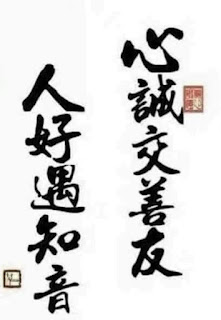 心誠交善友
人好遇知音